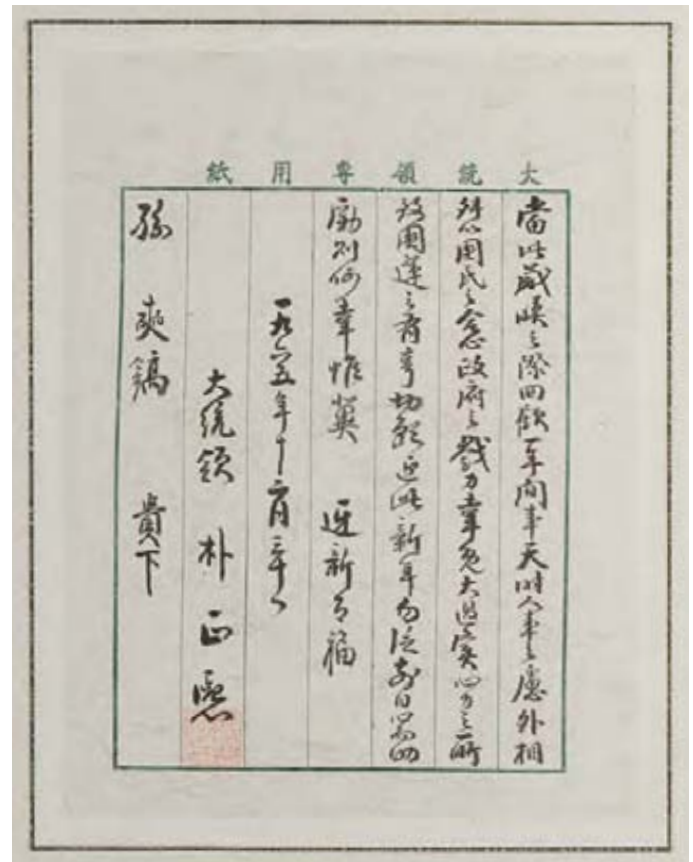 大統領專用紙
當此歲暮之際回顧一年間事天時人事之慮外相
國民之政府之戮力幸免大過實心力之所
致國運之有幸切迎此新年勿泛前日
勵則何幸惟冀 迎新多福
一九六五年十二月三十日
大統領 朴正熙
孫奭鎬 貴下